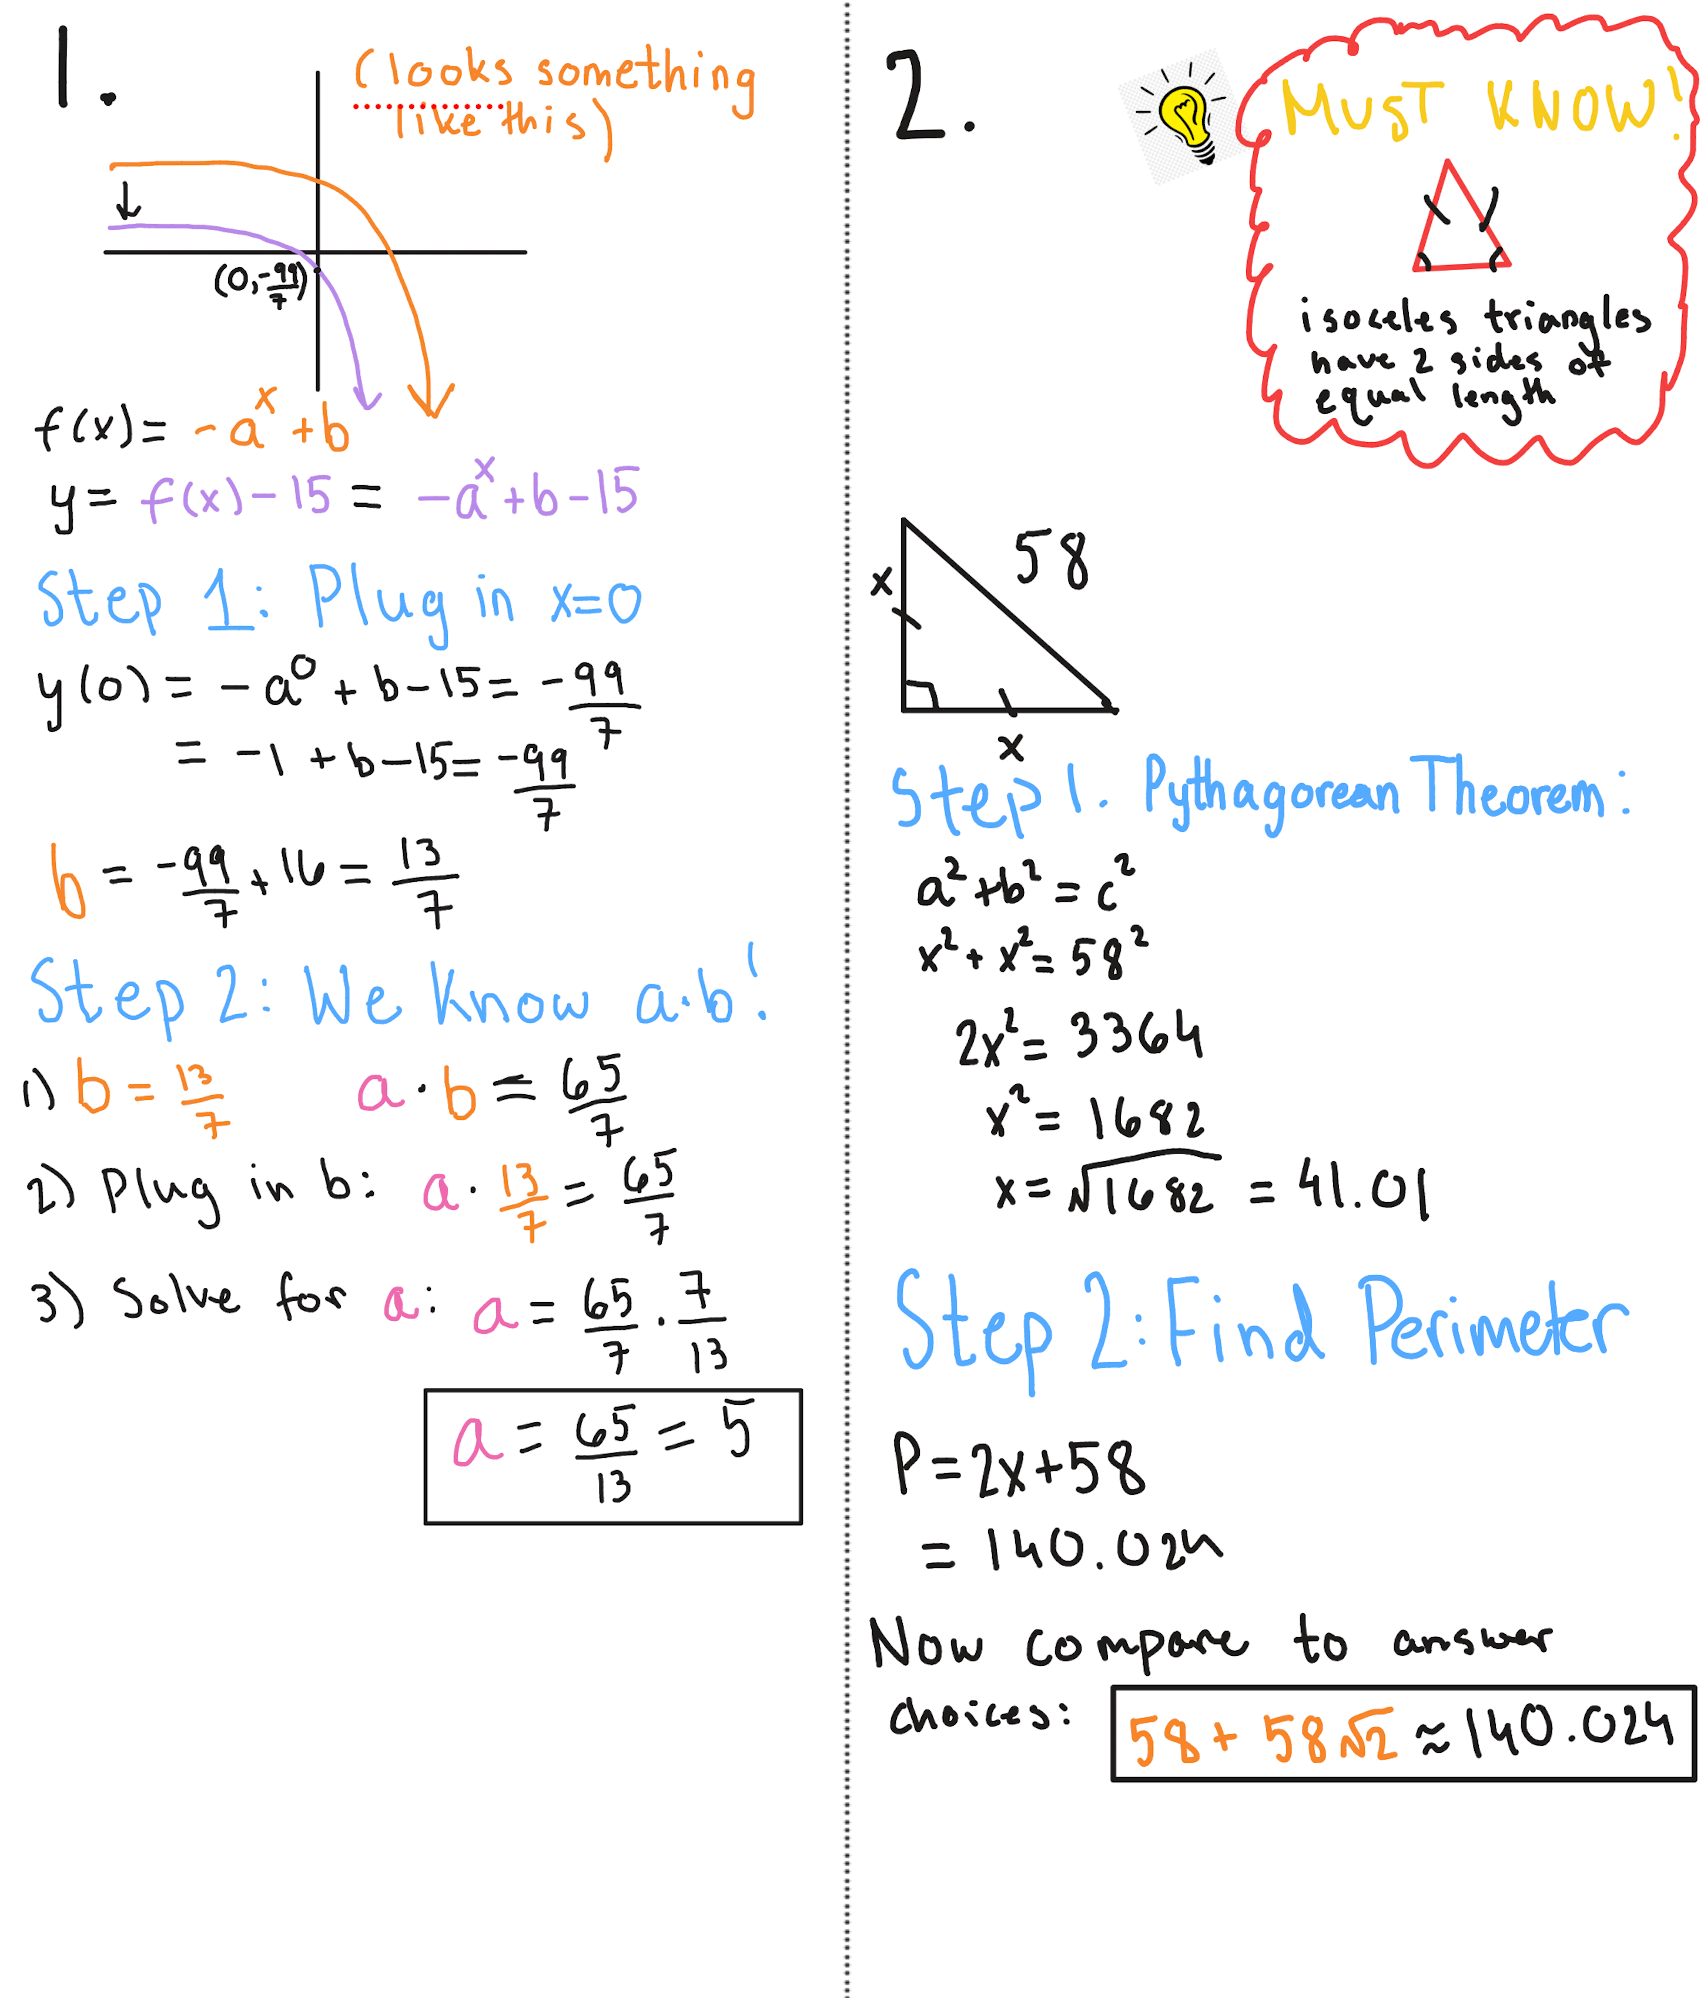 1.
(looks something
like this)
(0, -99/7)
f(x) = -a^x + b
y = f(x) - 15 = -a^x + b - 15
Step 1: Plug in x=0
y(0) = -a^0 + b - 15 = -99/7
= -1 + b - 15 = -99/7
b = -99/7 + 16 = 13/7
Step 2: We know a·b!
1) b = 13/7 a·b = 65/7
2) Plug in b: a · 13/7 = 65/7
3) Solve for a: a = 65/7 · 7/13
a = 65/13 = 5
2.
MUST KNOW!
isoceles triangles
have 2 sides of
equal length
58
x
x
Step 1. Pythagorean Theorem:
a² + b² = c²
x² + x² = 58²
2x² = 3364
x² = 1682
x = √1682 = 41.01
Step 2: Find Perimeter
P = 2x + 58
= 140.024
Now compare to answer
choices: 58 + 58√2 ≈ 140.024